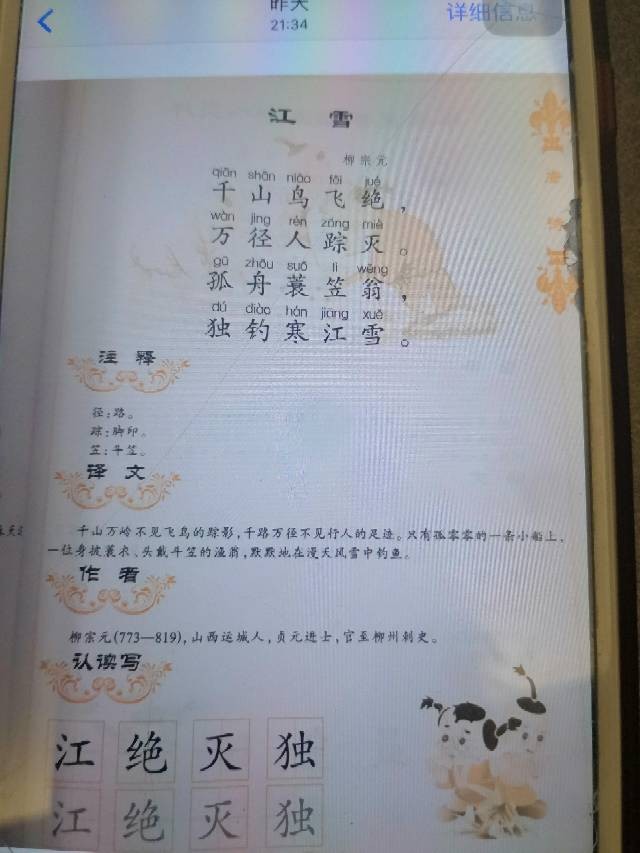 昨天
21:34
详细信息
江 雪
柳宗元
qiān shān niǎo fēi jué
千山鸟飞绝，
wàn jìng rén zōng miè
万径人踪灭。
gū zhōu suō lì wēng
孤舟蓑笠翁，
dú diào hán jiāng xuě
独钓寒江雪。
注 释
径：路。
踪：脚印。
笠：斗笠。
译 文
千山万岭不见飞鸟的踪影，千路万径不见行人的足迹。只有孤零零的一条小船上，
一位身披蓑衣、头戴斗笠的渔翁，默默地在漫天风雪中钓鱼。
作 者
柳宗元(773—819)，山西运城人，贞元进士，官至柳州刺史。
认读写
江 绝 灭 独
江 绝 灭 独